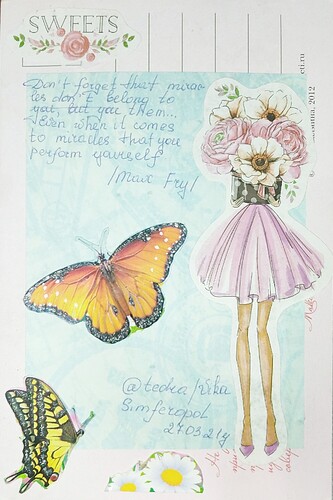 SWEETS
Don't forget that mirac-
les don't belong to
you, but you them...
Even when it comes
to miracles that you
perform yourself
/Max Fry/
@tedra/Vika
Simferopol
27.03.21y
2012
eti.ru